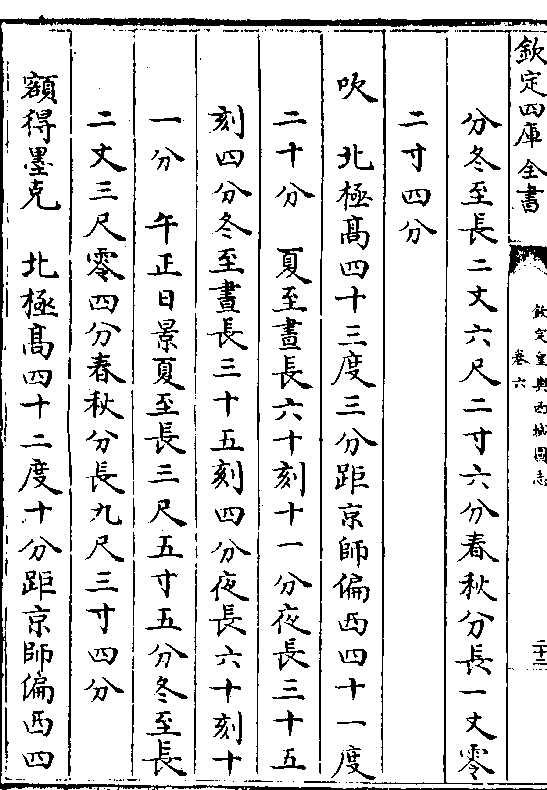 欽定四庫全書
欽定皇輿西域圖志
卷六
二十三
分冬至長二丈六尺二寸六分春秋分長一丈零
二寸四分
吹 北極髙四十三度三分距京師偏西四十一度
二十分 夏至晝長六十刻十一分夜長三十五
刻四分冬至晝長三十五刻四分夜長六十刻十
一分 午正日景夏至長三尺五寸五分冬至長
二丈三尺零四分春秋分長九尺三寸四分
額得墨克 北極髙四十二度十分距京師偏西四